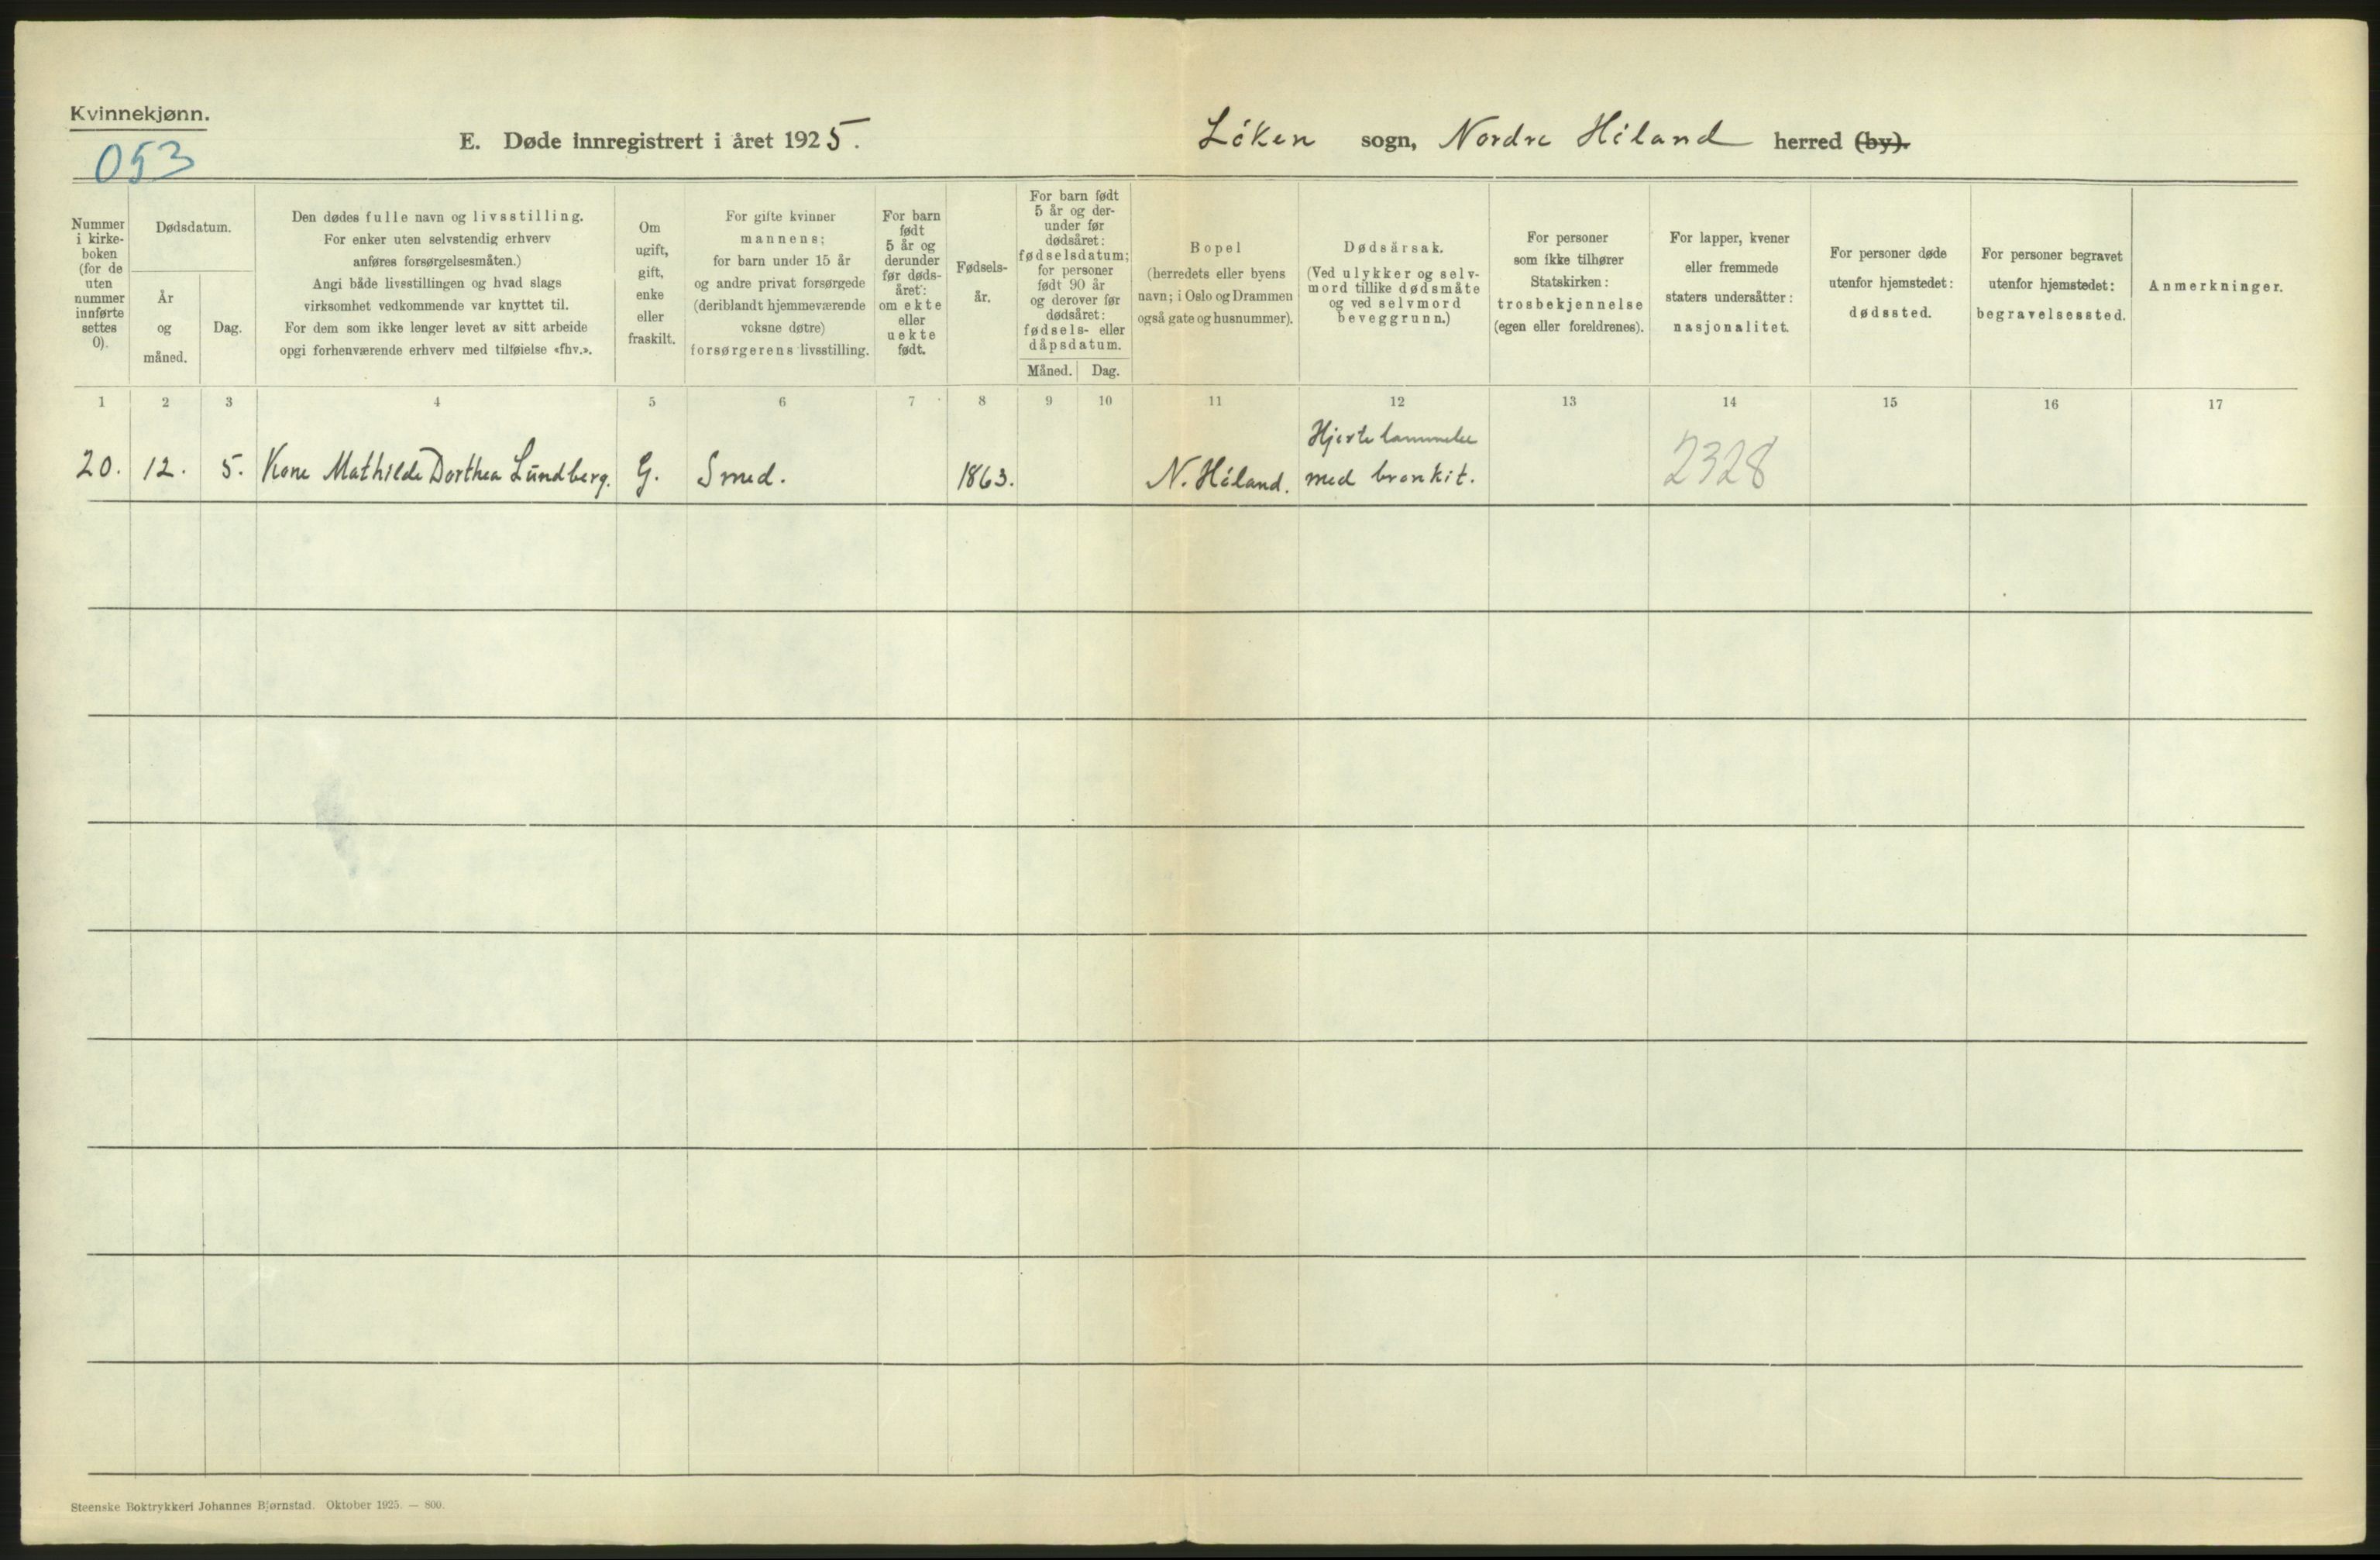 Kvinnekjønn.
053
E. Døde innregistrert i året 1925.
Löken sogn, Nordre Höland herred (by).
Nummer i kirke- boken (for de uten nummer innførte settes 0).
Dødsdatum.
År og måned.
Dag.
Den dødes fulle navn og livsstilling.
For enker uten selvstendig erhverv
anføres forsørgelsesmåten.)
Angi både livsstillingen og hvad slags
virksomhet vedkommende var knyttet til.
For dem som ikke lenger levet av sitt arbeide
opgi forhenværende erhverv med tilføielse «fhv.».
Om
ugift,
gift,
enke
eller
fraskilt.
For gifte kvinner
mannens;
for barn under 15 år
og andre privat forsørgede
(deriblandt hjemmeværende
voksne døtre)
forsørgerens livsstilling.
For barn
født
5 år og
derunder
før døds-
året:
om ekte
eller
uekte
født.
Fødsels-
år.
For barn født
5 år og der-
under før
dødsåret:
fødselsdatum;
for personer
født 90 år
og derover før
dødsåret:
fødsels- eller
dåpsdatum.
Måned. Dag.
Bopel
(herredets eller byens
navn; i Oslo og Drammen
også gate og husnummer).
Dødsårsak.
(Ved ulykker og selv-
mord tillike dødsmåte
og ved selvmord
beveggrunn.)
For personer
som ikke tilhører
Statskirken:
trosbekjennelse
(egen eller foreldrenes).
For lapper, kvener
eller fremmede
staters undersåtter:
nasjonalitet.
For personer døde
utenfor hjemstedet:
dødssted.
For personer begravet
utenfor hjemstedet:
begravelsessted.
Anmerkninger.
1 2 3 4 5 6 7 8 9 10 11 12 13 14 15 16 17
Hjertelammelse
20. 12. 5. Kone Mathilde Dorthea Lundberg. G. Smed. 1863. N. Höland. med bronkit. 2328
Steenske Boktrykkeri Johannes Bjørnstad. Oktober 1925. — 800.